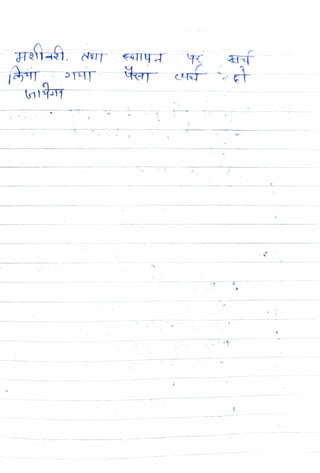 मशीनरी. तथा स्थापन पर खर्च
किया गया पैसा व्यर्थ हो
जायेगा